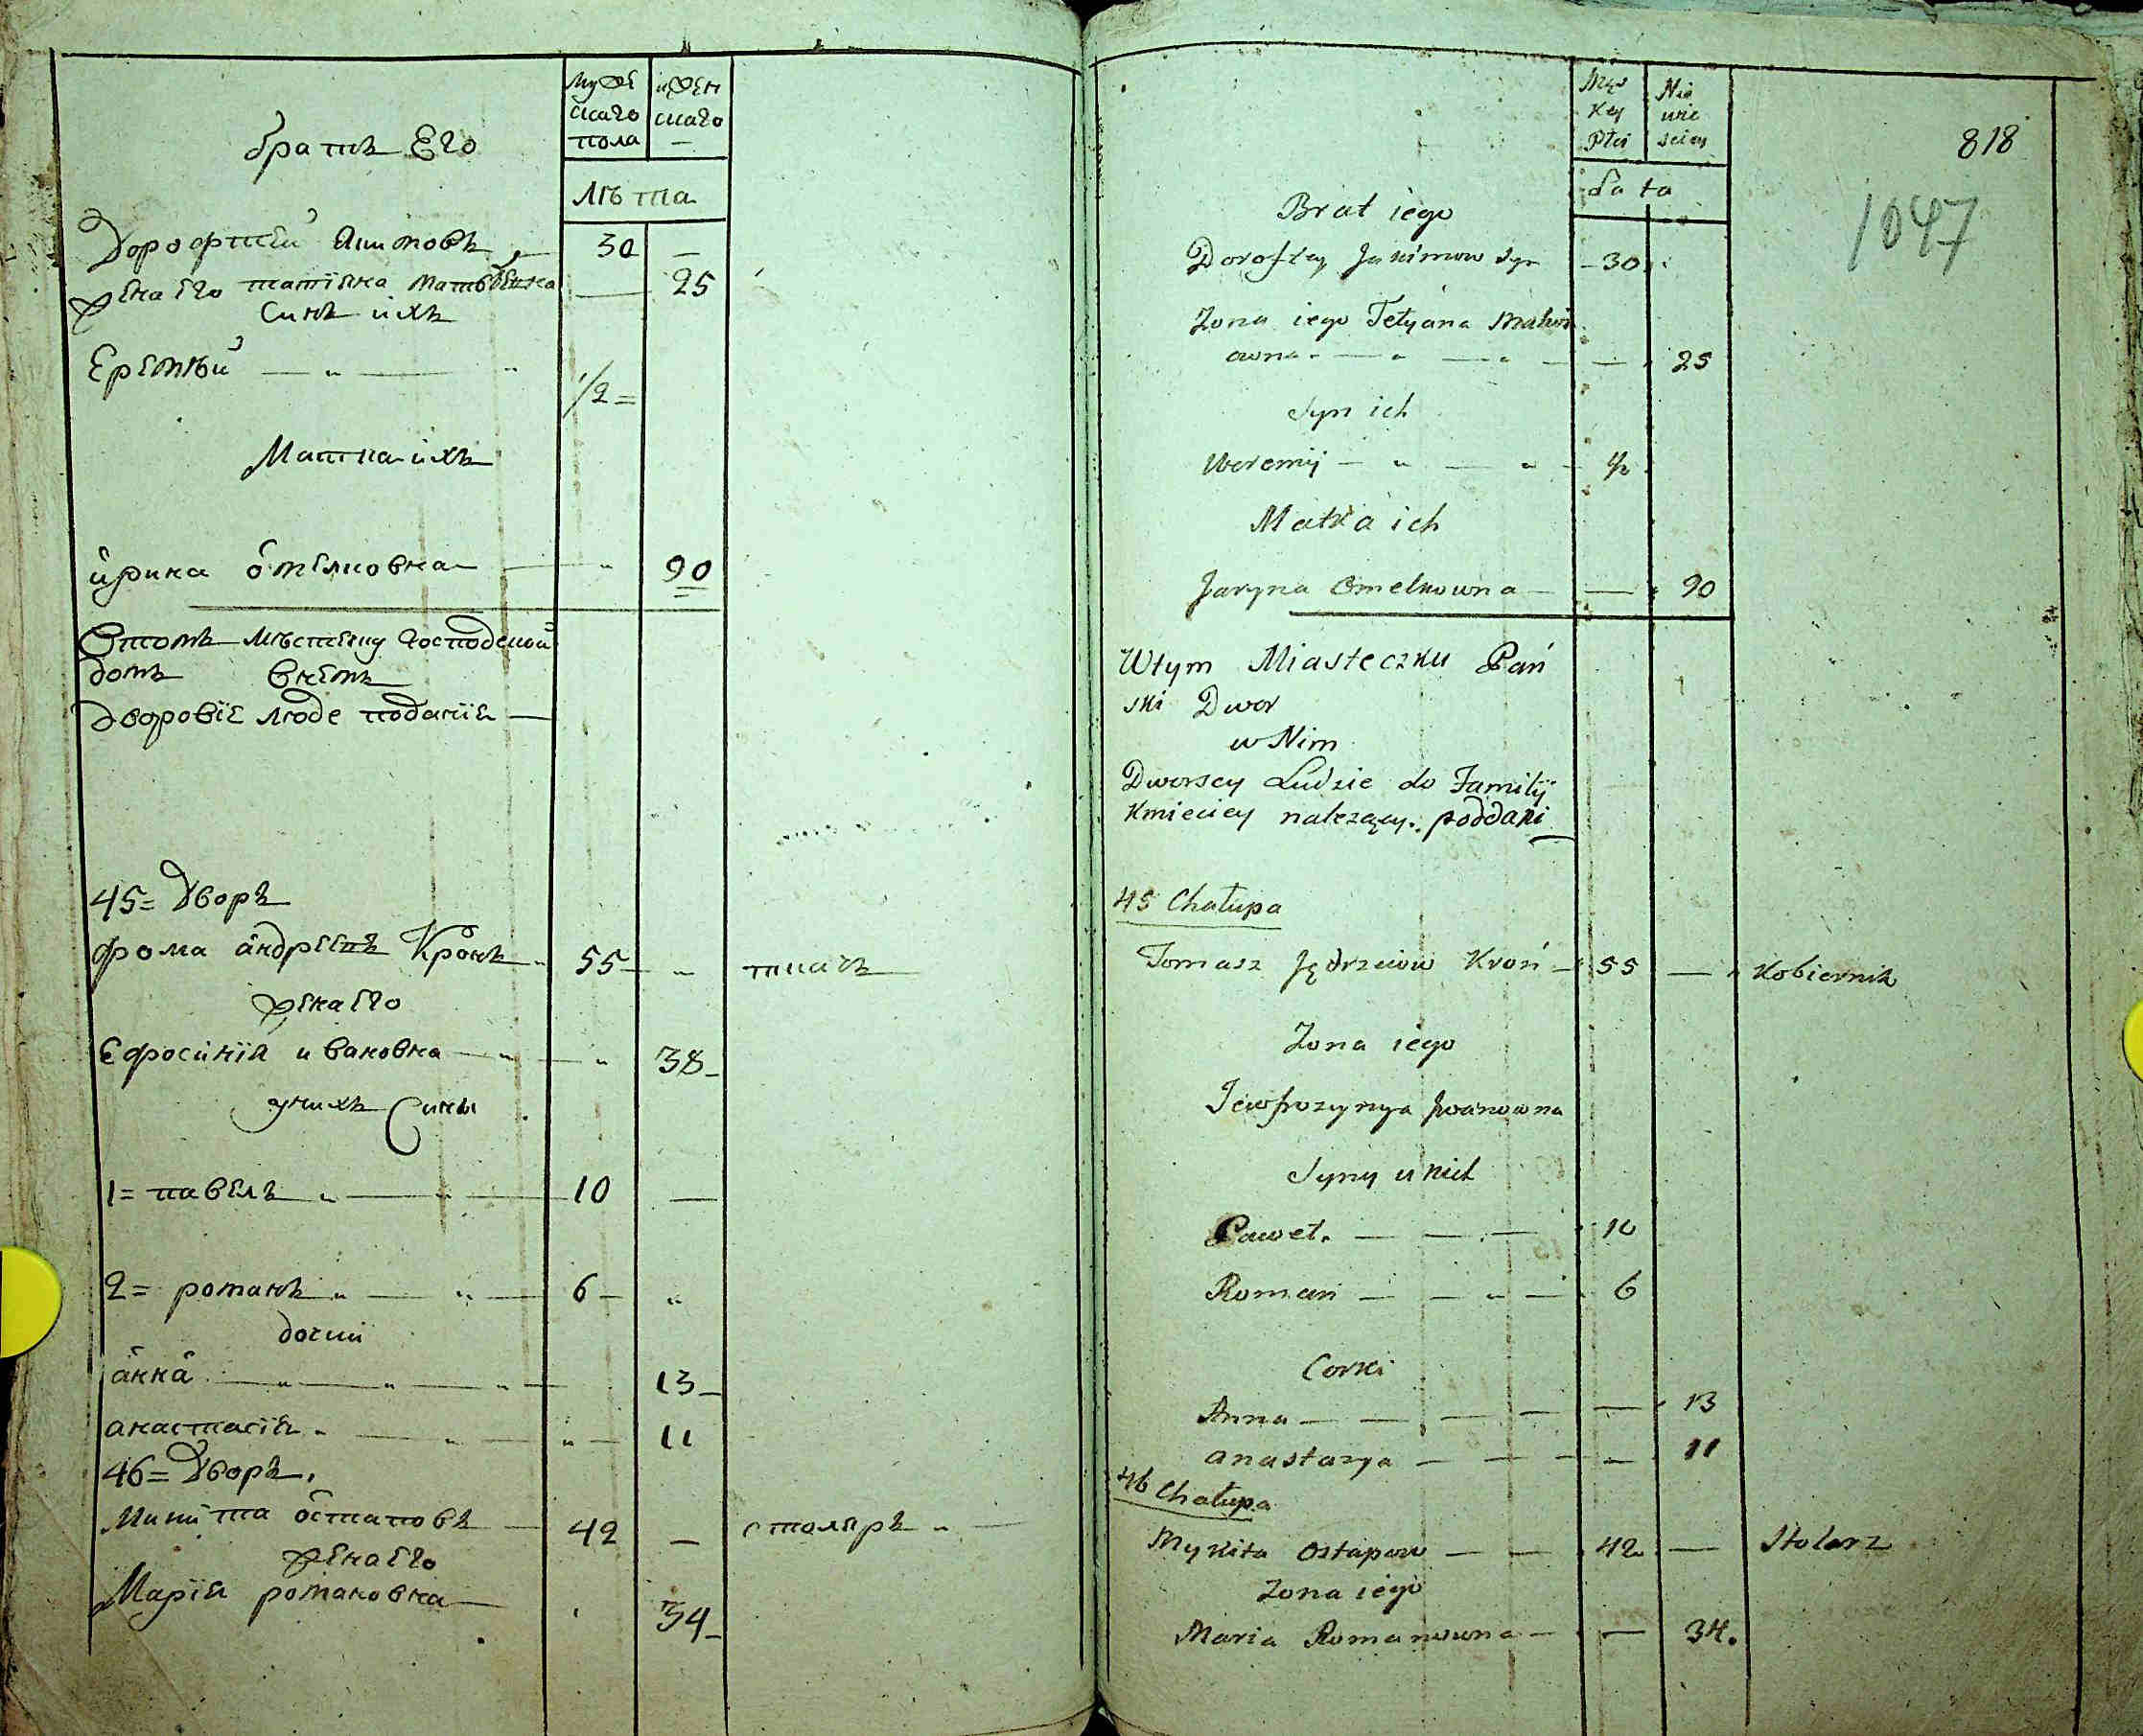 Мужескаго пола
женскаго
Лѣта
братъ Его
Дорофтей Якимовъ 30 —
жена Его татіяна матвѣевна — 25
Синъ ихъ
Еремѣй — „ — „ 1/2 =
Матка ихъ
ирина омелковна — „ 90
Втомъ мѣстечку Господскои
домъ внемъ
дворовіе люде поданіе —
45 = Дворъ
фома андреевъ Кронь „ 55 — „ ткачъ
жена его
Ефросинія ивановна — „ — „ 38 —
унихъ Сины
1 = павелъ „ — „ — 10 —
2 = романъ „ — „ — 6 — „
дочки
анна — „ — „ — „ — 13 —
анастасія „ — „ — „ — 11
46 = Дворъ.
Микита остаповъ — 42 — столяръ „ —
жена его
Марія романовна — 34 —
Męz Key Płci
Nie wie sciey
Lata
818
1047
Brat iego
Doroftey Jakimow Syn — 30
Zona iego Tetyana Matwi
owna — „ — „ — — 25
Syn ich
Weremij — „ — „ — 1/2
Matka ich
Jaryna Omelkowna — — 90
Wtym Miasteczku Pań
ski Dwor
w Nim
Dworscy Ludzie do Familij
Kmieciey należący. poddani
45 Chałupa
Tomasz Jędrzeiow Kroń — 55 — Kobiernik
Zona iego
Jewfrozynya Jwanowna
Syny u nich
Paweł. — — — 10
Roman — — „ — 6
Corki
Anna — — — — — 13
anastazya — — — — 11
46 Chałupa
Mykita Ostapow — — 42 — Stolarz
Zona iego
Maria Romanowna — — 34.